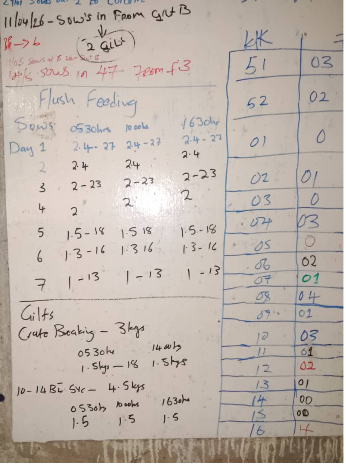 11/04/26 - Sow's in From Gilt B
2 Gilt
Sows in 47 From F3
Flush Feeding
Sows 0530hr 1000hr 1630hr
Day 1 2.4 - 27 2.4 - 27 2.4 - 27
2 2.4 24 2.4
3 2 - 23 2 - 23 2 - 23
4 2 2 2
5 1.5 - 18 1.5 18 1.5 - 18
6 1.3 - 16 1.3 16 1.3 - 16
7 1 - 13 1 - 13 1 - 13
Gilts
Crate Beaking - 3kgs
0530hr 1400hr
1.5kgs - 18 1.5kgs
10 - 14 4.5kgs
0530hr 1000hr 1630hr
1.5 1.5 1.5
WK
51 03
52 02
01 0
02 01
03 0
04 03
05 0
06 02
07 01
08 04
09 01
10 03
11 01
12 02
13 01
14 00
15 00
16 4